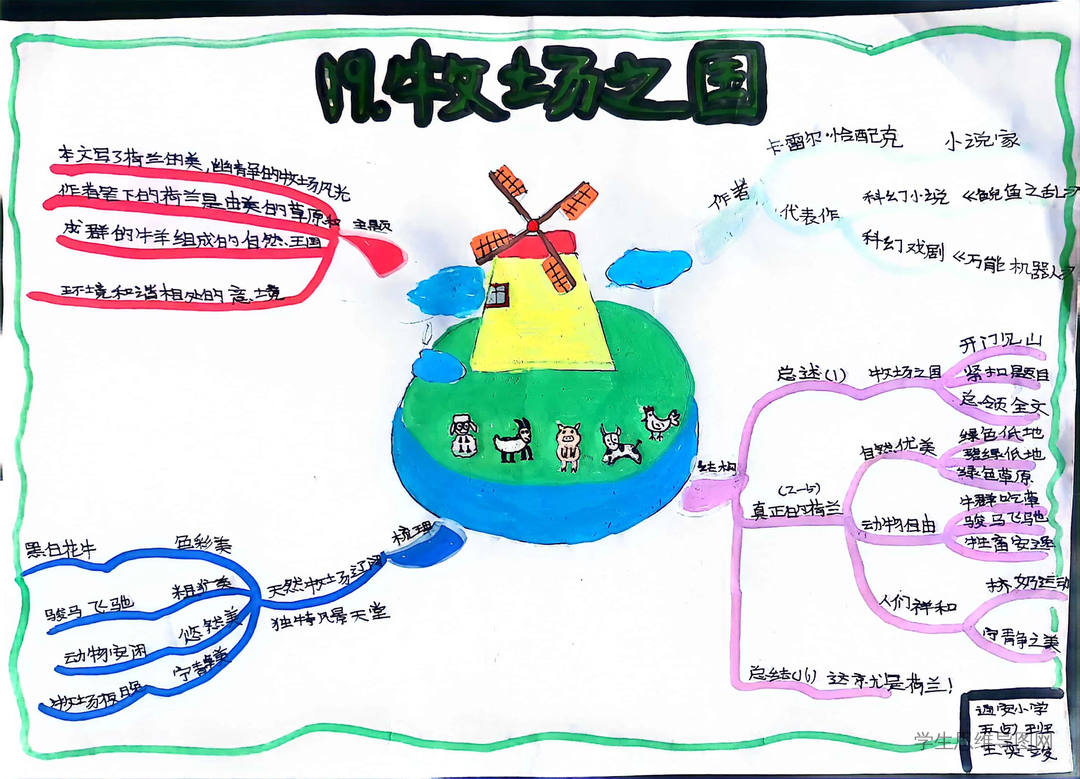 19.牧场之国
本文写了荷兰的美,幽静的牧场风光
作者笔下的荷兰是由美的草原和
成群的牛羊组成的自然王国
环境和谐相处的意境
主题
作者
卡雷尔·恰配克 小说家
代表作
科幻小说《鲵鱼之乱》
科幻戏剧《万能机器人》
结构
总述(1) 牧场之国
开门见山
紧扣题目
总领全文
(2-5)
真正的荷兰
自然优美
绿色低地
碧绿低地
绿色草原
动物自由
牛群吃草
骏马飞驰
牲畜安逸
人们祥和
挤奶运动
宁静之美
总结(6) 这就是荷兰!
梳理
天然牧场辽阔
独特风景天堂
色彩美
黑白花牛
粗犷美
骏马飞驰
悠然美
动物安闲
宁静美
牧场夜晚
小学
班
学生思维导图网